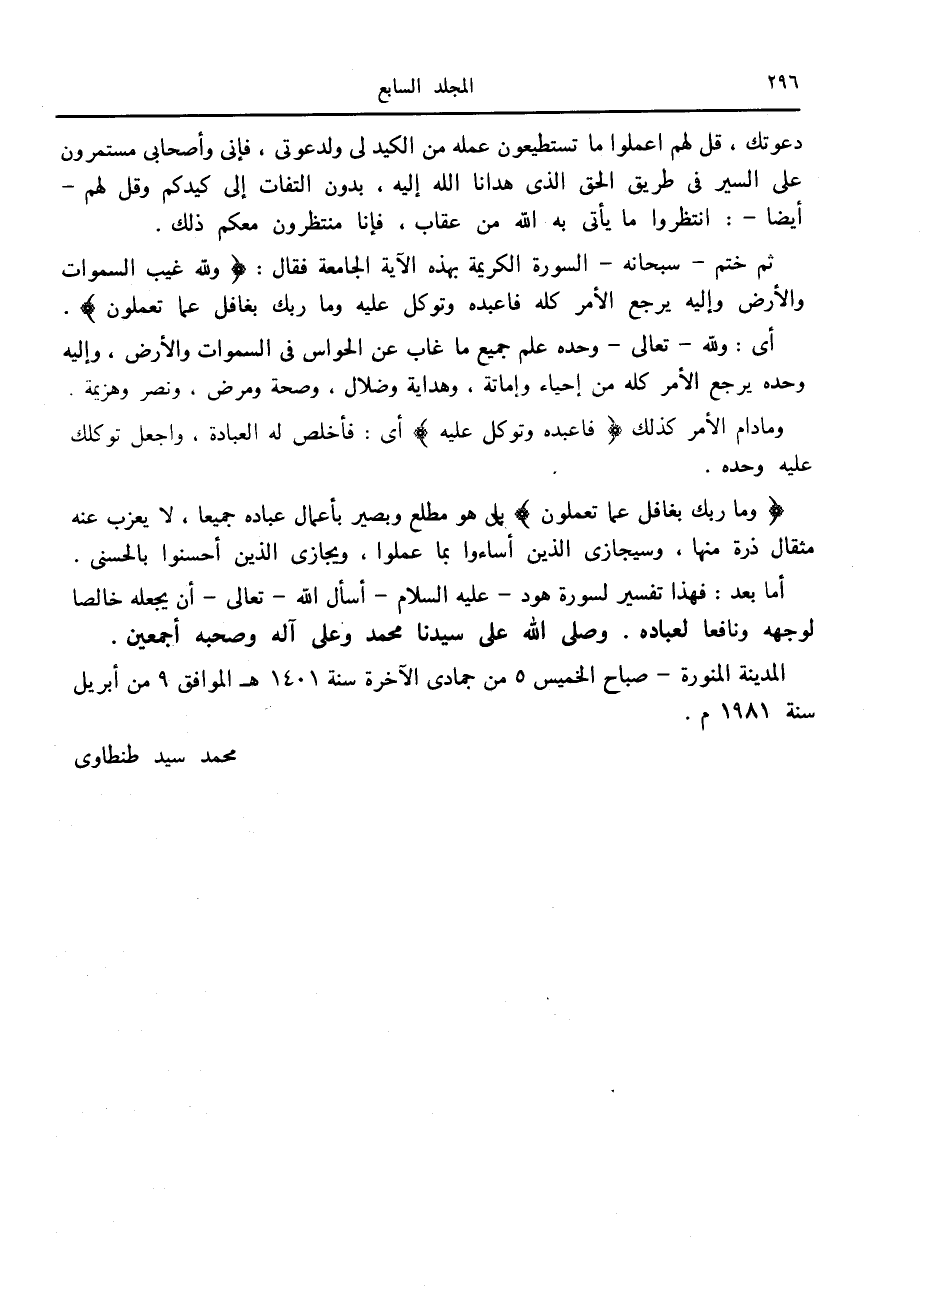 ٢٩٦
المجلد السابع
دعوتك ، قل لهم اعملوا ما تستطيعون عمله من الكيد لى ولدعوتى ، فإنى وأصحابى مستمرون
على السير فى طريق الحق الذى هدانا الله إليه ، بدون التفات إلى كيدكم وقل لهم –
أيضا – : انتظروا ما يأتى به الله من عقاب ، فإنا منتظرون معكم ذلك .
ثم ختم – سبحانه – السورة الكريمة بهذه الآية الجامعة فقال : ﴿ ولله غيب السموات
والأرض وإليه يرجع الأمر كله فاعبده وتوكل عليه وما ربك بغافل عما تعملون ﴾ .
أى : ولله – تعالى – وحده علم جميع ما غاب عن الحواس فى السموات والأرض ، وإليه
وحده يرجع الأمر كله من إحياء وإماتة ، وهداية وضلال ، وصحة ومرض ، ونصر وهزيمة .
ومادام الأمر كذلك ﴿ فاعبده وتوكل عليه ﴾ أى : فأخلص له العبادة ، واجعل توكلك
عليه وحده .
﴿ وما ربك بغافل عما تعملون ﴾ بلى هو مطلع وبصير بأعمال عباده جميعا ، لا يعزب عنه
مثقال ذرة منها ، وسيجازى الذين أساءوا بما عملوا ، ويجازى الذين أحسنوا بالحسنى .
أما بعد : فهذا تفسير لسورة هود – عليه السلام – أسأل الله – تعالى – أن يجعله خالصا
لوجهه ونافعا لعباده . وصلى الله على سيدنا محمد وعلى آله وصحبه أجمعين .
المدينة المنورة – صباح الخميس ٥ من جمادى الآخرة سنة ١٤٠١ هـ الموافق ٩ من أبريل
سنة ١٩٨١ م .
محمد سيد طنطاوى